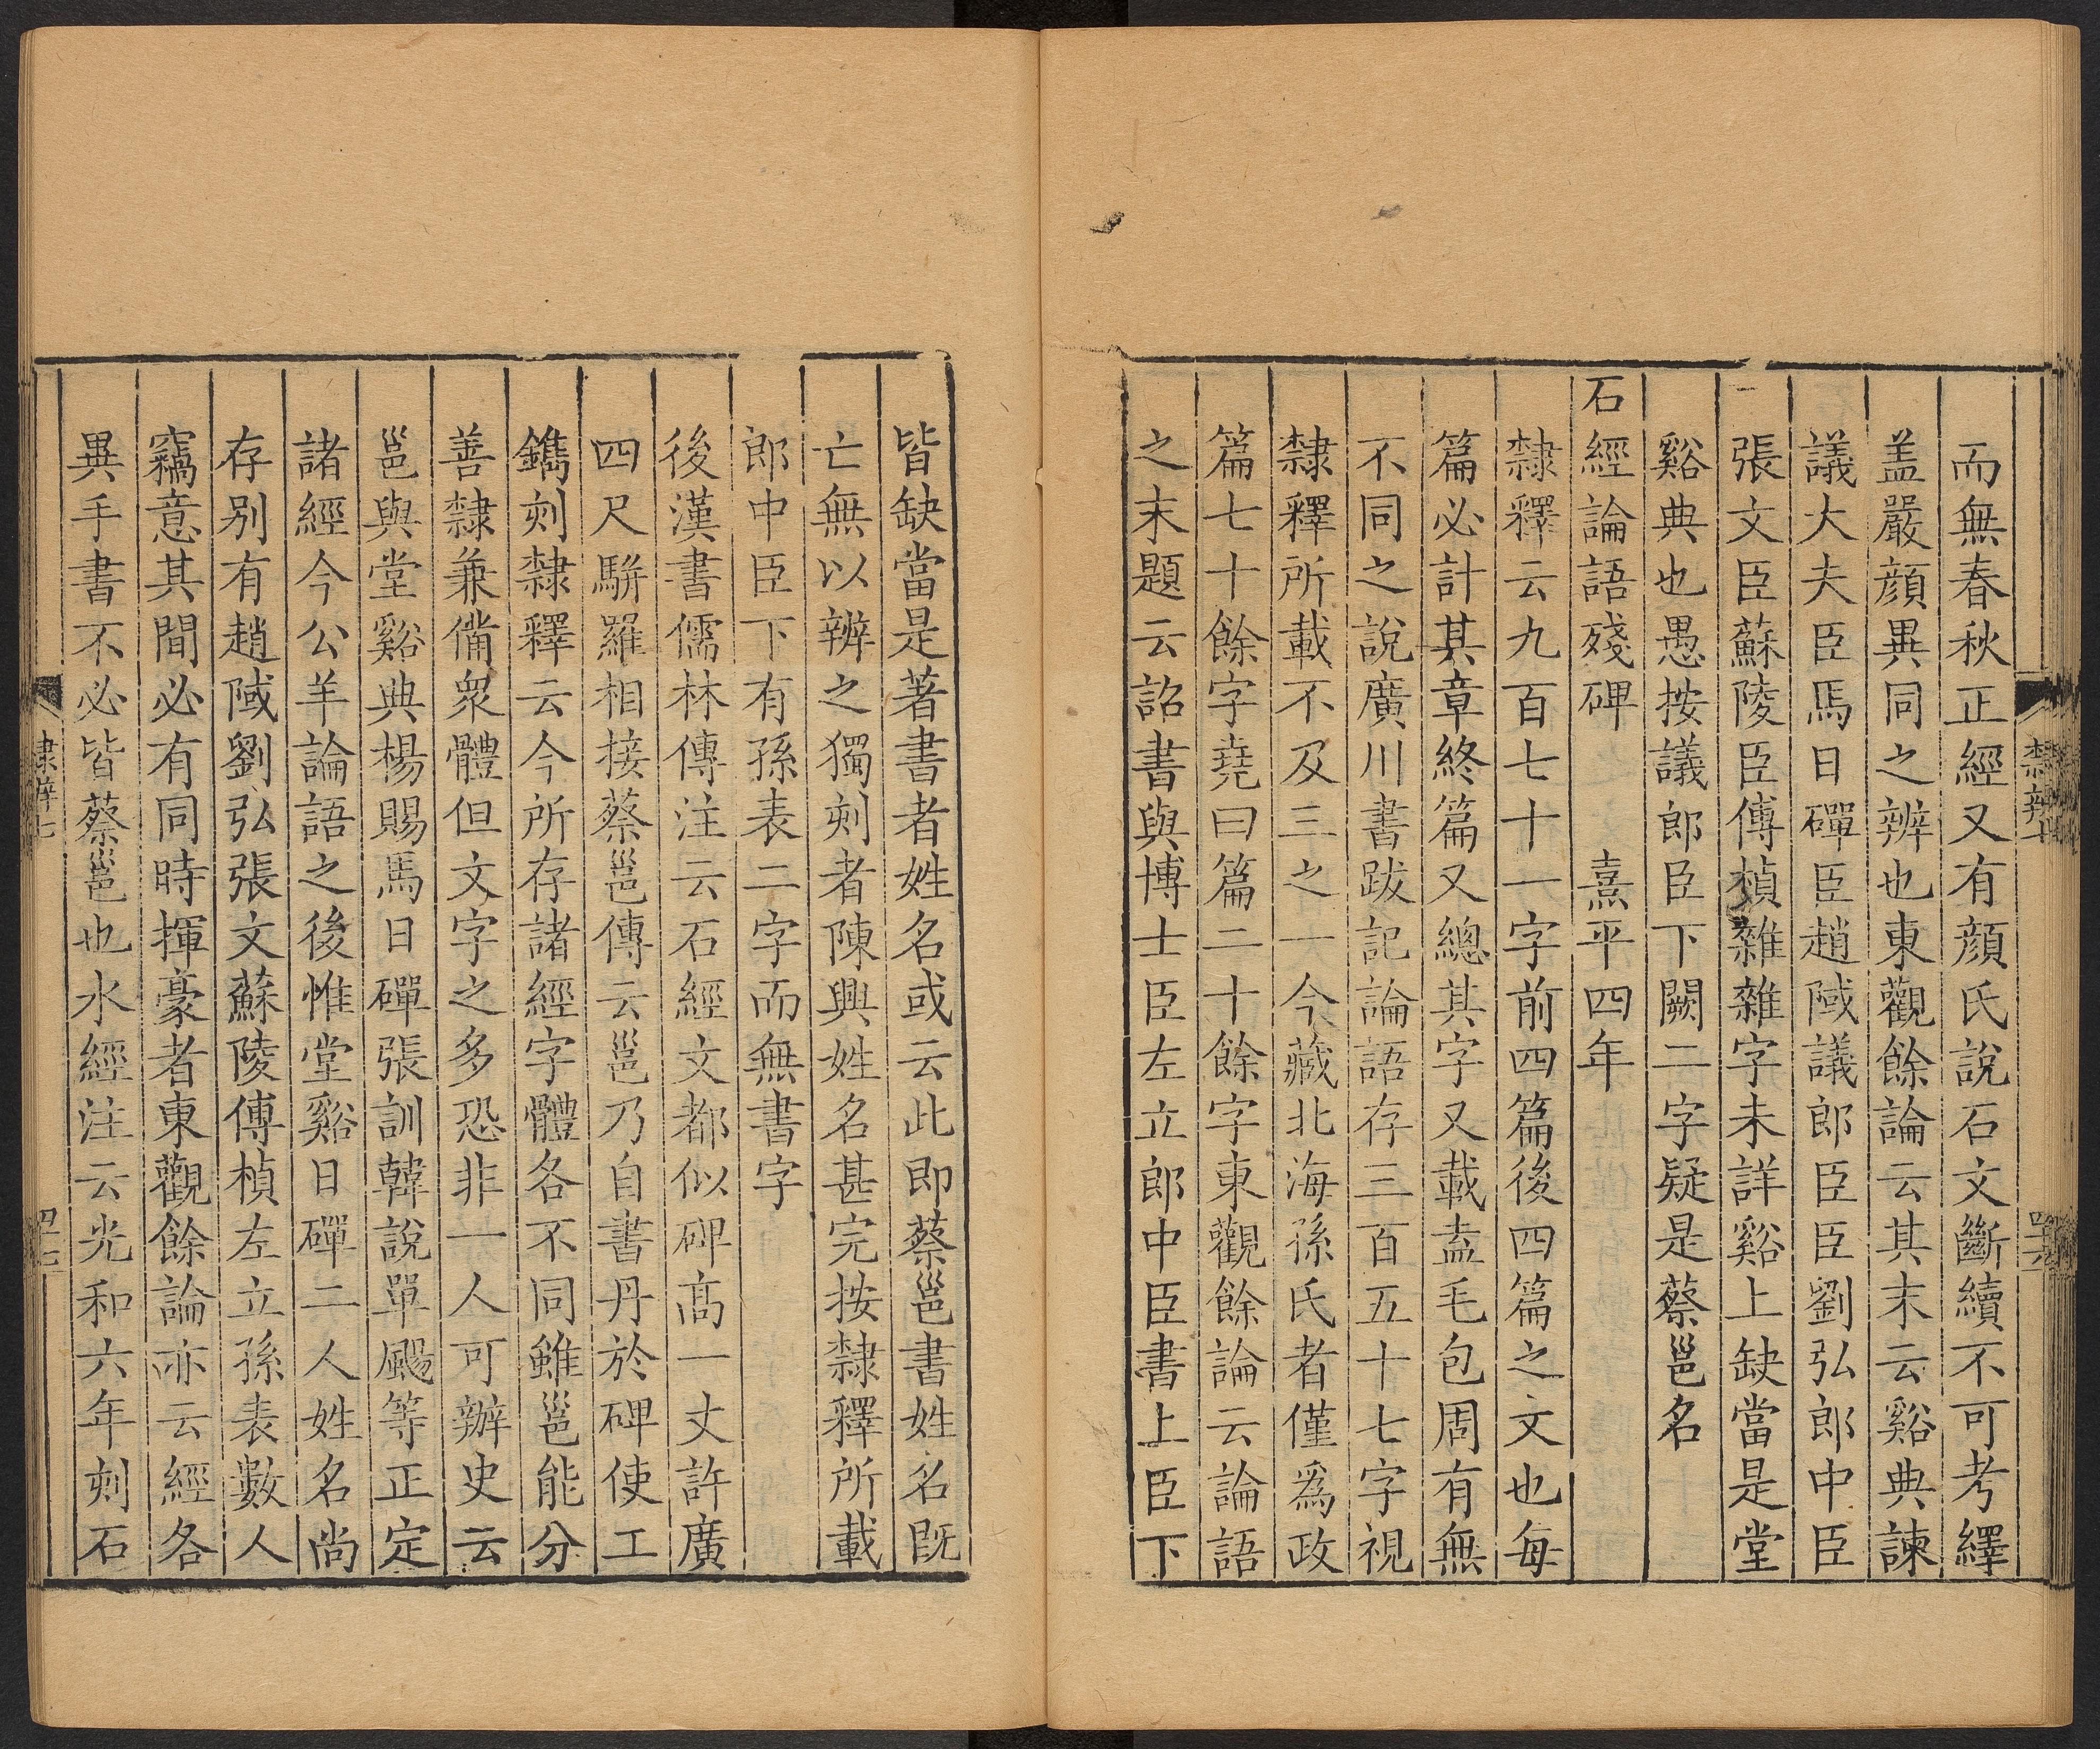 而無春秋正經又有顔氏說石文斷續不可考繹
盖嚴顔異同之辨也東觀餘論云其末云谿典諫
議大夫臣馬日磾臣趙䧕議郎臣臣劉弘郎中臣
張文臣蘇陵臣傅楨雜雜字未詳谿上缺當是堂
谿典也愚按議郎臣下闕二字疑是蔡邕名
石經論語殘碑 熹平四年
隸釋云九百七十一字前四篇後四篇之文也每
篇必計其章終篇又總其字又載盍毛包周有無
不同之說廣川書跋記論語存三百五十七字視
隸釋所載不及三之一今藏北海孫氏者僅爲政
篇七十餘字堯曰篇二十餘字東觀餘論云論語
之末題云詔書與博士臣左立郎中臣書上臣下
隸辨七
皆缺當是著書者姓名或云此即蔡邕書姓名旣
亡無以辨之獨刻者陳興姓名甚完按隸釋所載
郎中臣下有孫表二字而無書字
後漢書儒林傳注云石經文都似碑高一丈許廣
四尺駢羅相接蔡邕傳云邕乃自書丹於碑使工
鐫刻隸釋云今所存諸經字體各不同雖邕能分
善隸兼備衆體但文字之多恐非一人可辦史云
邕與堂谿典楊賜馬日磾張訓韓說單颺等正定
諸經今公羊論語之後惟堂谿日磾二人姓名尚
存别有趙䧕劉弘張文蘇陵傅楨左立孫表數人
竊意其間必有同時揮毫者東觀餘論亦云經各
異手書不必皆蔡邕也水經注云光和六年刻石
隸辨七
四七